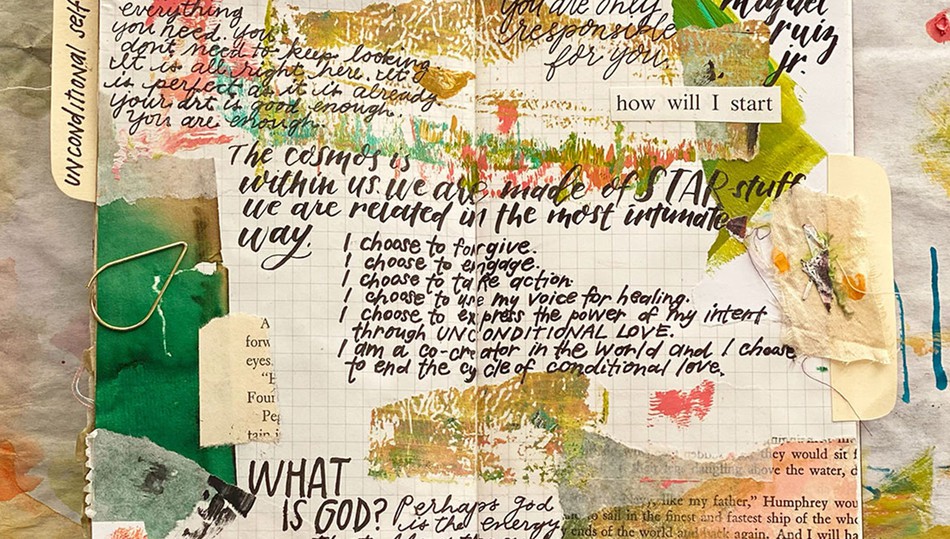 UNCONDITIONAL self
everything
you need. You
dont need to keep looking
It is all right here. It
is perfect as it is already.
Your art is good enough.
You are enough.
You are only
responsible
for you.
miguel
ruiz
jr.
how will I start
The cosmos is
within us. we are made of STAR stuff
we are related in the most intimate
way.
I choose to forgive.
I choose to engage.
I choose to take action.
I choose to use my voice for healing.
I choose to express the power of my intent
through UNCONDITIONAL LOVE.
I am a co-creator in the world and I choose
to end the cycle of conditional love.
A
forw
eyes.
"B
Four
Peg
tain i
WHAT
IS GOD? Perhaps god
is the energy
they would sit f
their legs dangling above the water, d
my, like my father," Humphrey wou
to sail in the finest and fastest ship of the who
ends of the world and back again. And I will ha